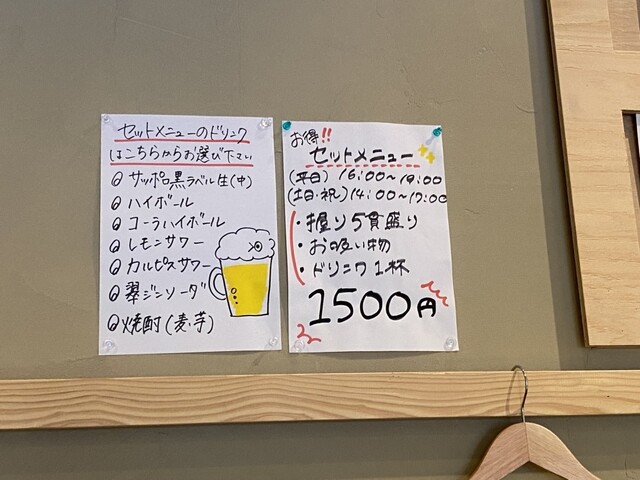 セットメニューのドリンク
はこちらからお選び下さい
サッポロ黒ラベル生(中)
ハイボール
コーラハイボール
レモンサワー
カルピスサワー
翠ジンソーダ
焼酎(麦・芋)
お得!!
セットメニュー
(平日)16:00〜19:00
(土日・祝)14:00〜17:00
・握り5貫盛り
・お吸い物
・ドリンク1杯
1500円